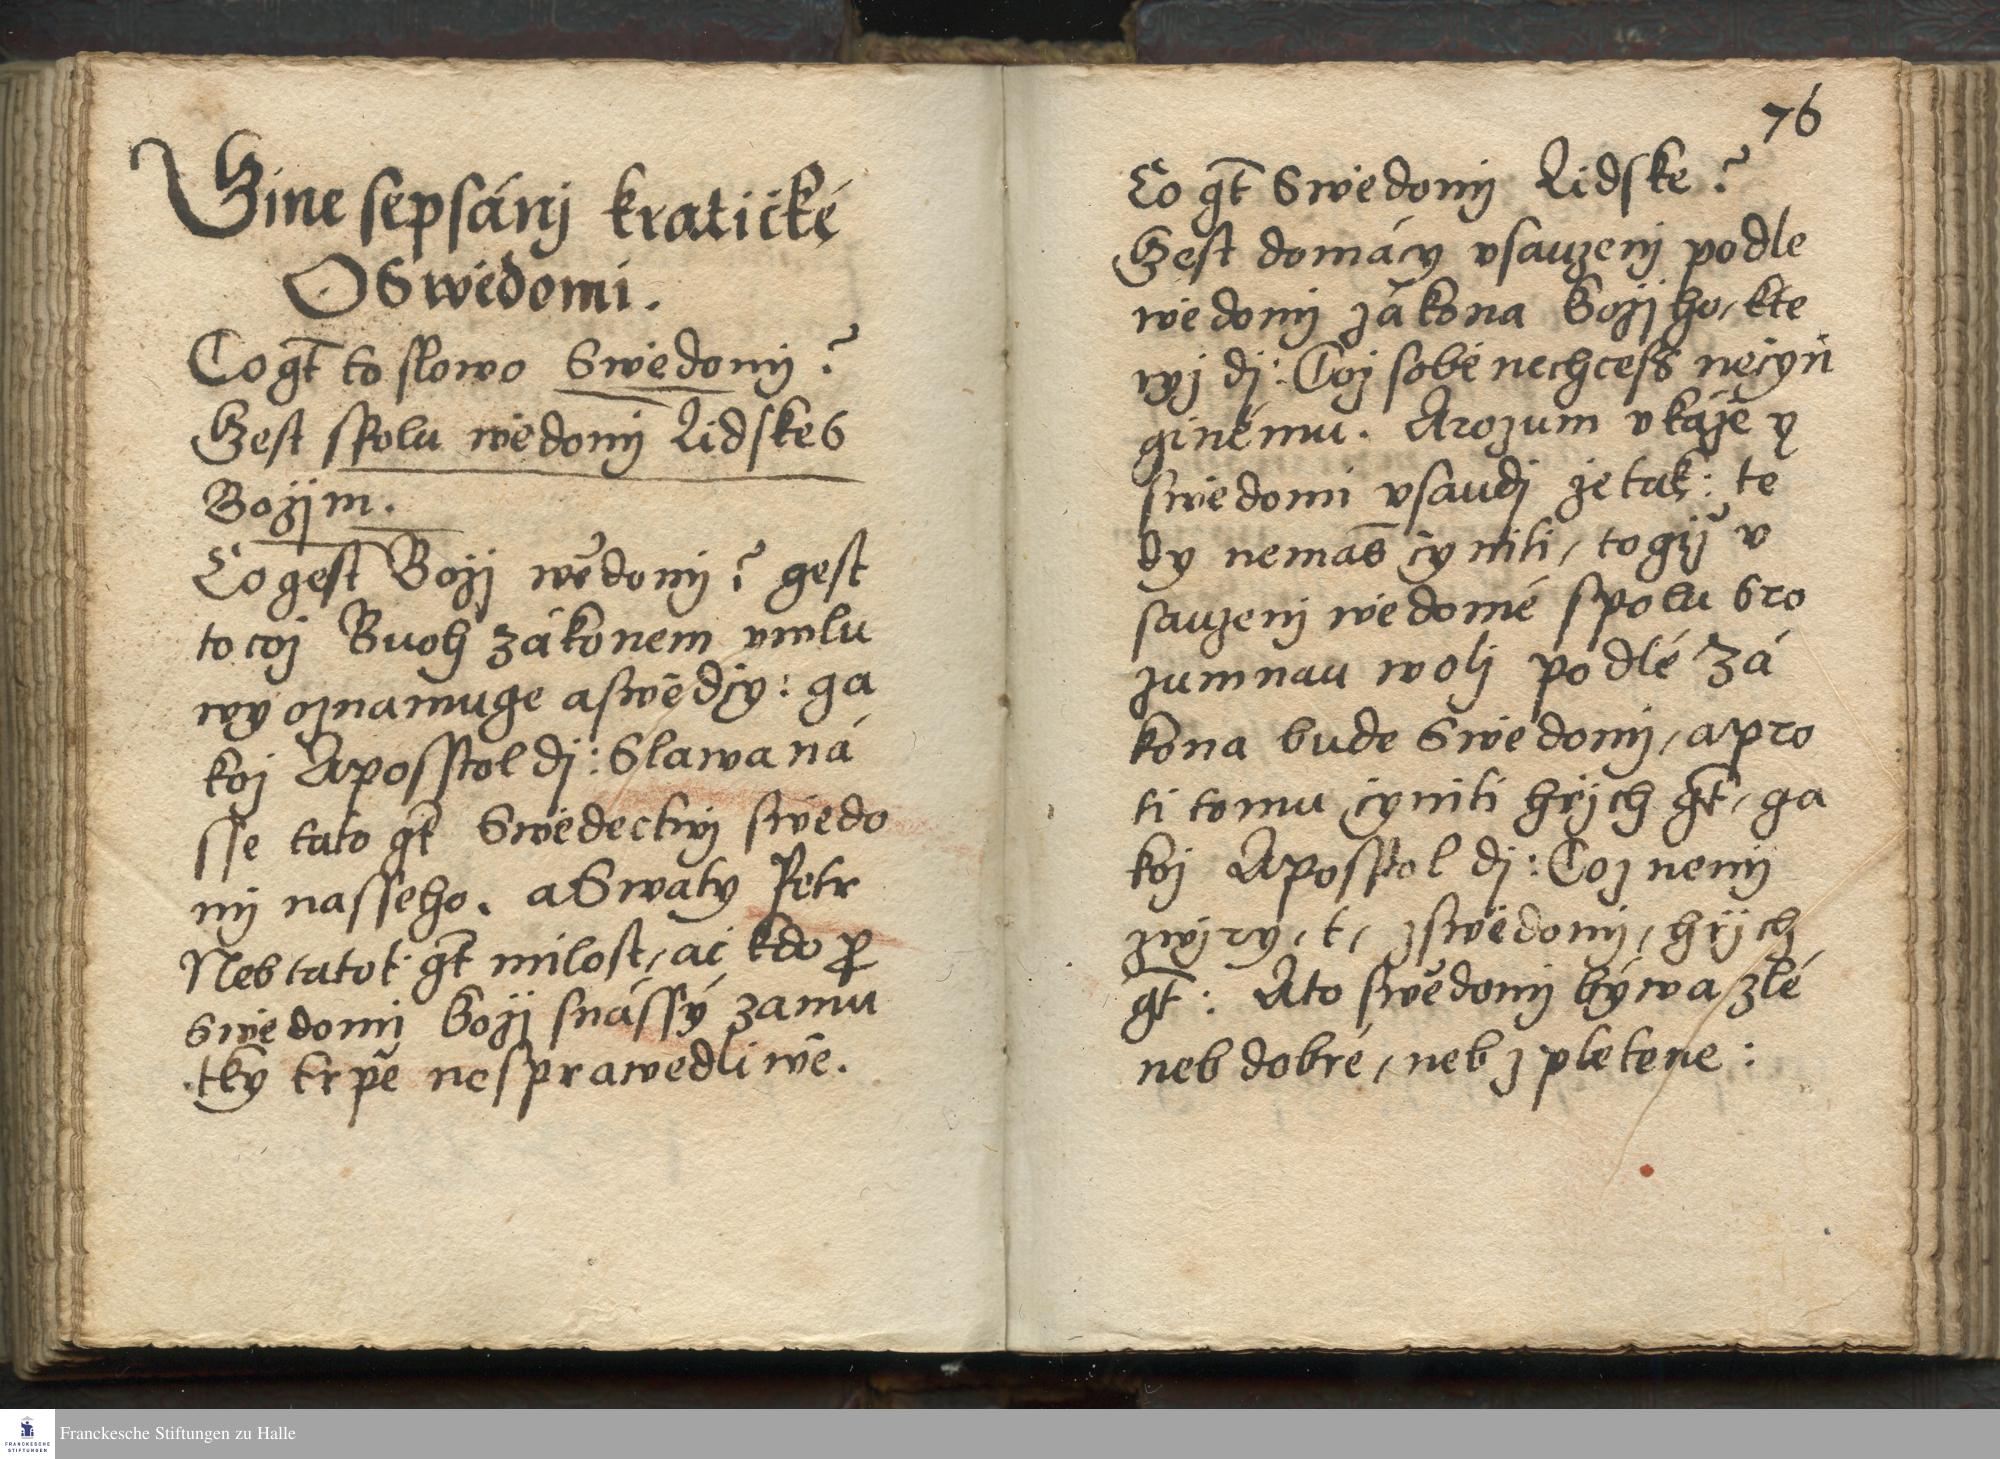 Gine sepsánj kratičké
O Swědomi.
Co gt to slowo Swědomj ?
Gest spolu wědomj Lidske s
Božjm.
Co gest Božj wědomj ? gest
to coz Buoh zákonem vmlu
wy oznamuge a swědčy : ga
koz Aposstol dj : Slawa ná
sse tato gt Swědectwj swědo
mj nasseho. a Swaty Petr
Neb tatot gt milost, ač kdo ꝓ
swědomj Božj snássý zamu
tky trpě nesprawedliwě.
76
Co gt Swědomj Lidske ?
Gest domácý vsauzenj podle
wědomj zákona Božjho, kte
ryz dj : Coz sobě nechcess nečyň
ginému. A rozum vkáže y
swědomi vsaudj že tak : te
dy nemáš čyniti, togiž v
sauzenj wědomé spolu s ro
zumnau wolj podlé Zá
kona bude Swědomj, a pro
ti tomu čyniti hřjch gt, ga
koz Aposstol dj : Coz nenj
z wjry, t, z swědomj, hřjch
gt : A to swědomj býwa zlé
neb dobré, neb zpletene :
Franckesche Stiftungen zu Halle
FRANCKESCHE
STIFTUNGEN